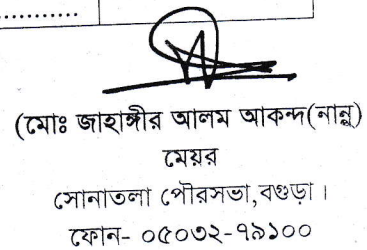 ............
(মোঃ জাহাঙ্গীর আলম আকন্দ(নান্নু)
মেয়র
সোনাতলা পৌরসভা,বগুড়া।
ফোন- ০৫০৩২-৭৯১০০